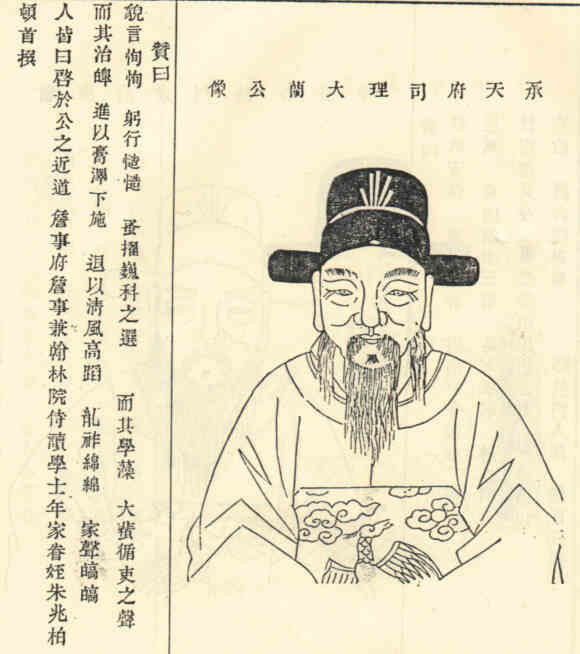 承天府司理大蘭公像
贊曰
貌言恂恂 躬行慥慥 蚤擢巍科之選 而其學藻 大蜚循吏之聲
而其治皥 進以膏澤下施 退以清風高蹈 胤祚綿綿 家聲皜皜
人皆曰啓於公之近道 詹事府詹事兼翰林院侍讀學士年家眷姪朱兆柏
頓首撰